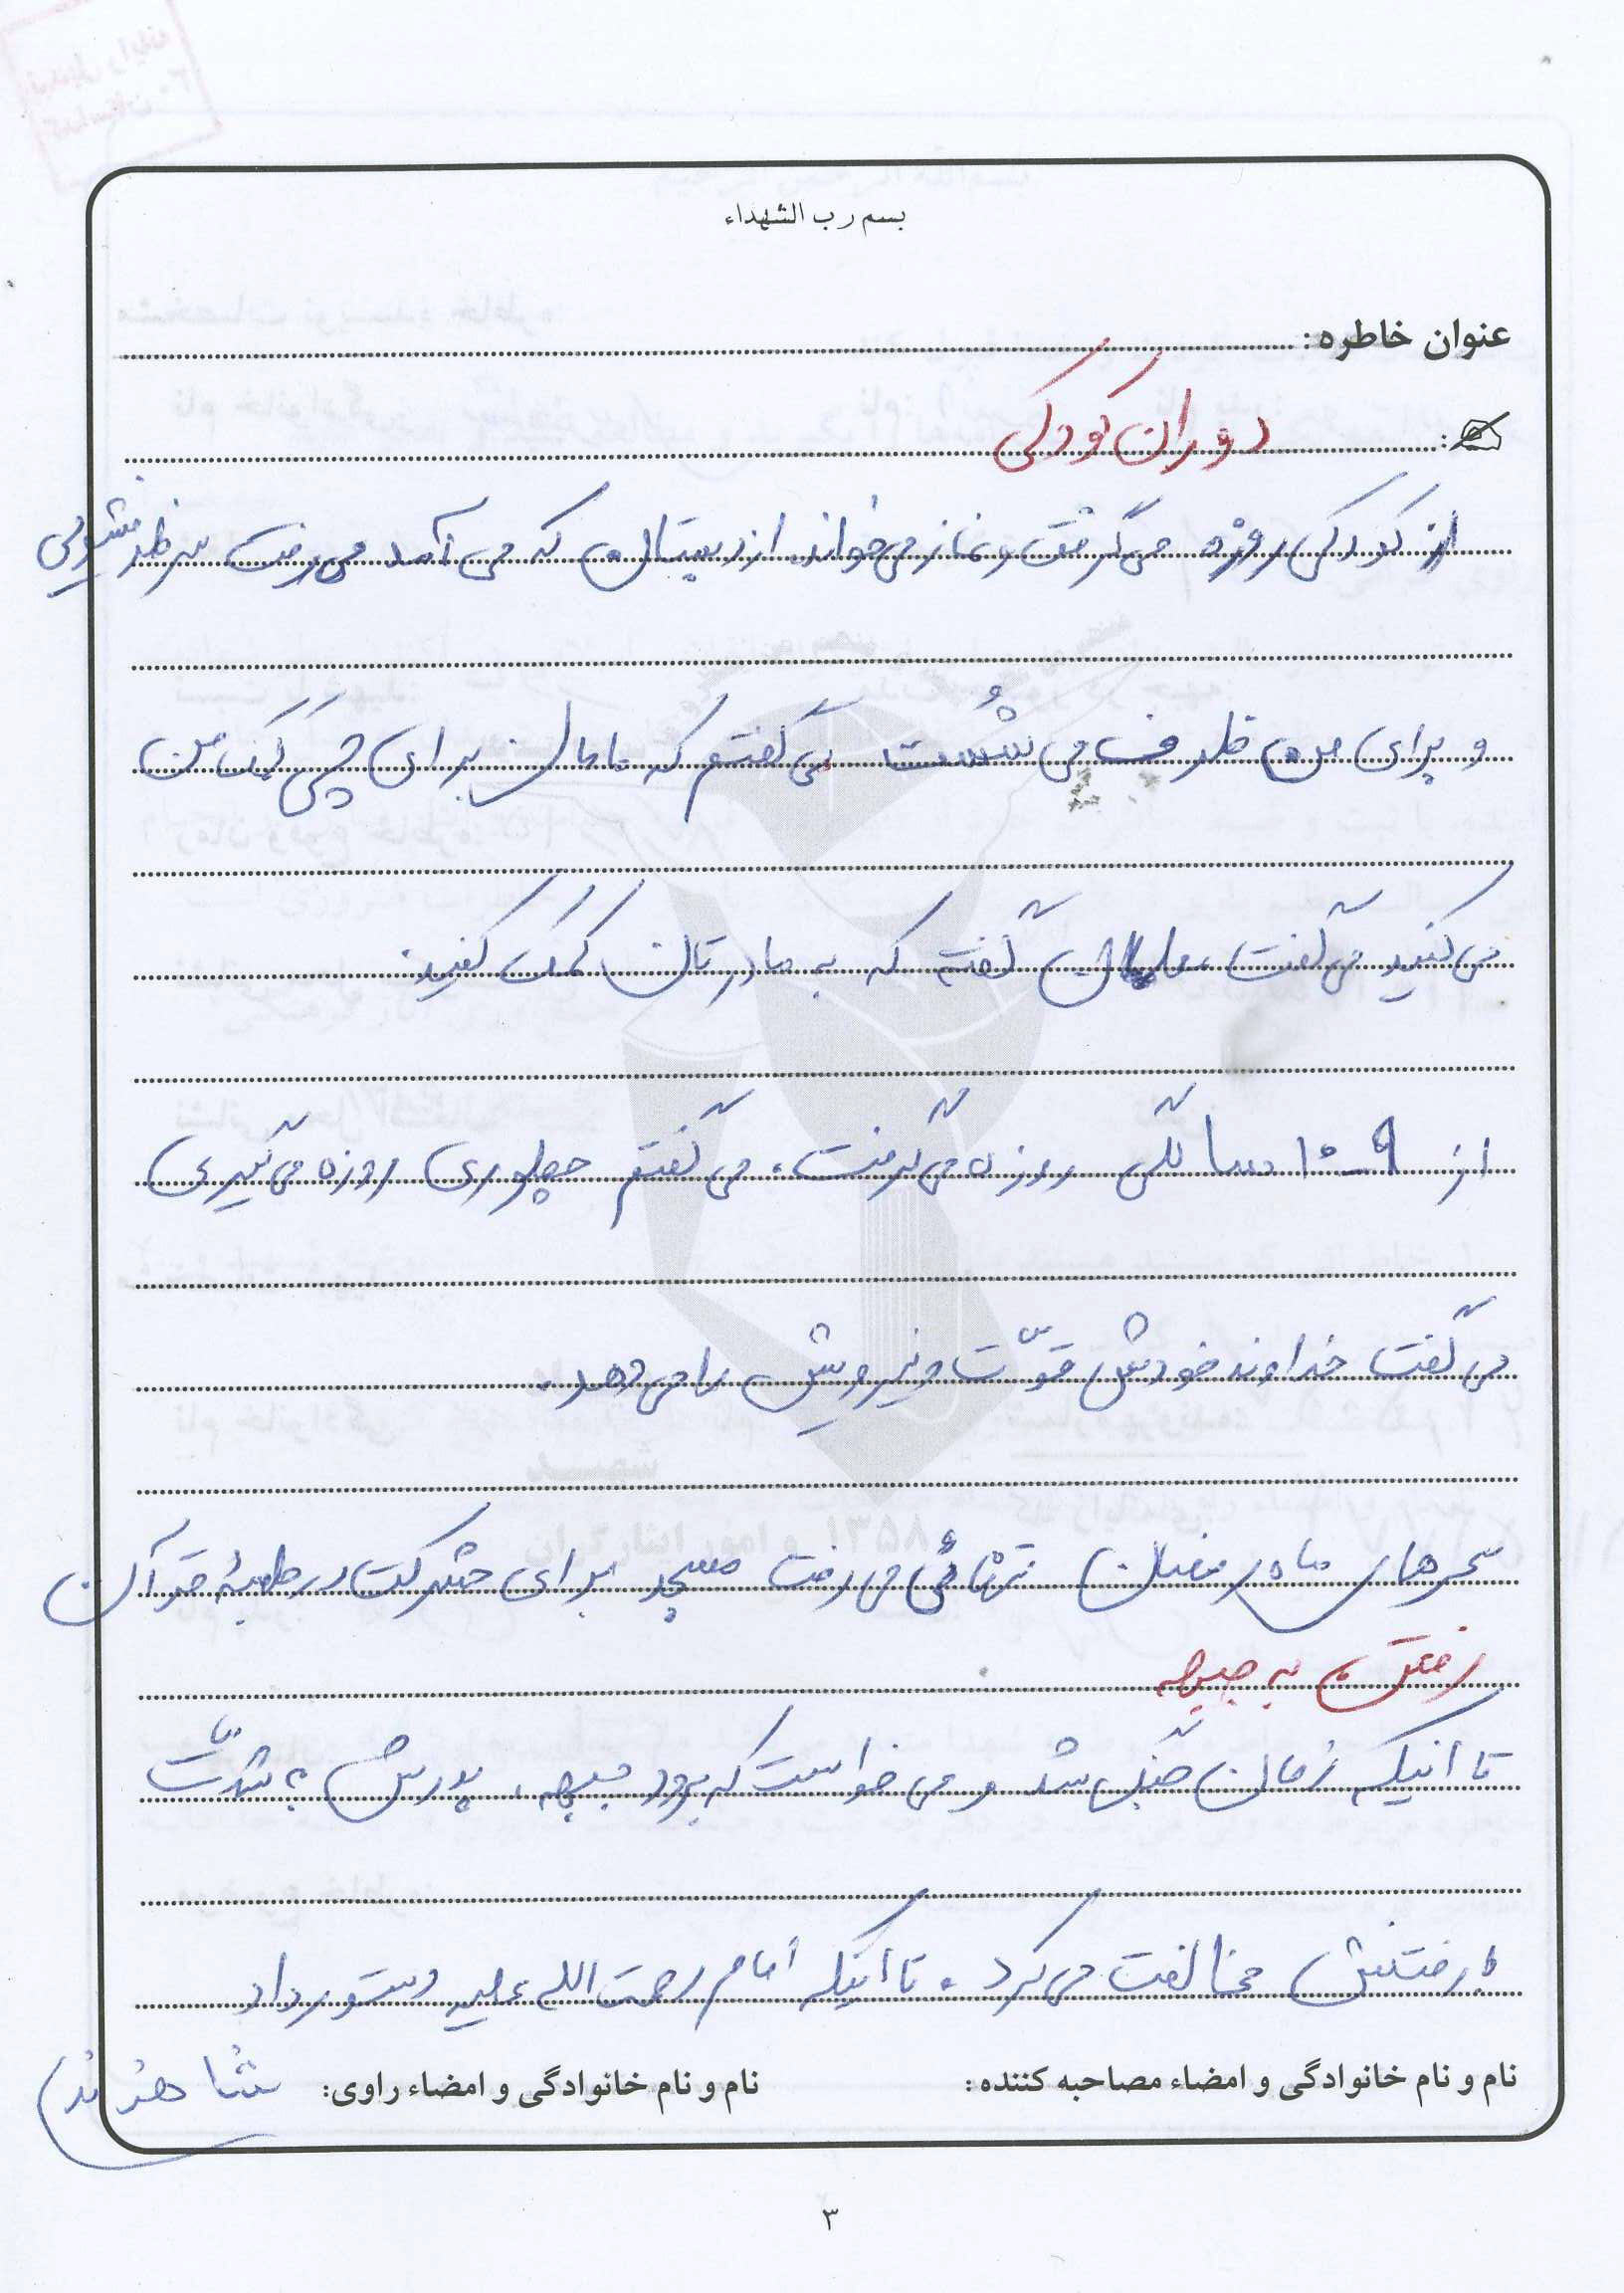 بسم رب الشهداء
عنوان خاطره:
دوران کودکی
از کودکی روزه می‌گرفت و نماز می‌خواند. از دبستان که می آمد می‌رفت سر ظرفشویی
و برای من ظرف می شُست می گفتم که مامان برای چی کمک من
می کنید می گفت، گفته که به مادرتان کمک کنید.
از ۹-۱۰ سالگی روزه می‌گرفت، می گفتم چطوری روزه می‌گیری
می گفت خداوند خودش قوّت و نیرویش را می دهد.
سحرهای ماه رمضان تنهائی می رفت مسجد برای شرکت در جلسهٔ قرآن
رفتن به جبهه
تا اینکه زمان جنگ شد و می خواست که برود جبهه، پدرش به شدّت
با رفتنش مخالفت می کرد. تا اینکه امام رحمت الله علیه دستور داد
نام و نام خانوادگی و امضاء مصاحبه کننده: نام و نام خانوادگی و امضاء راوی:
۳